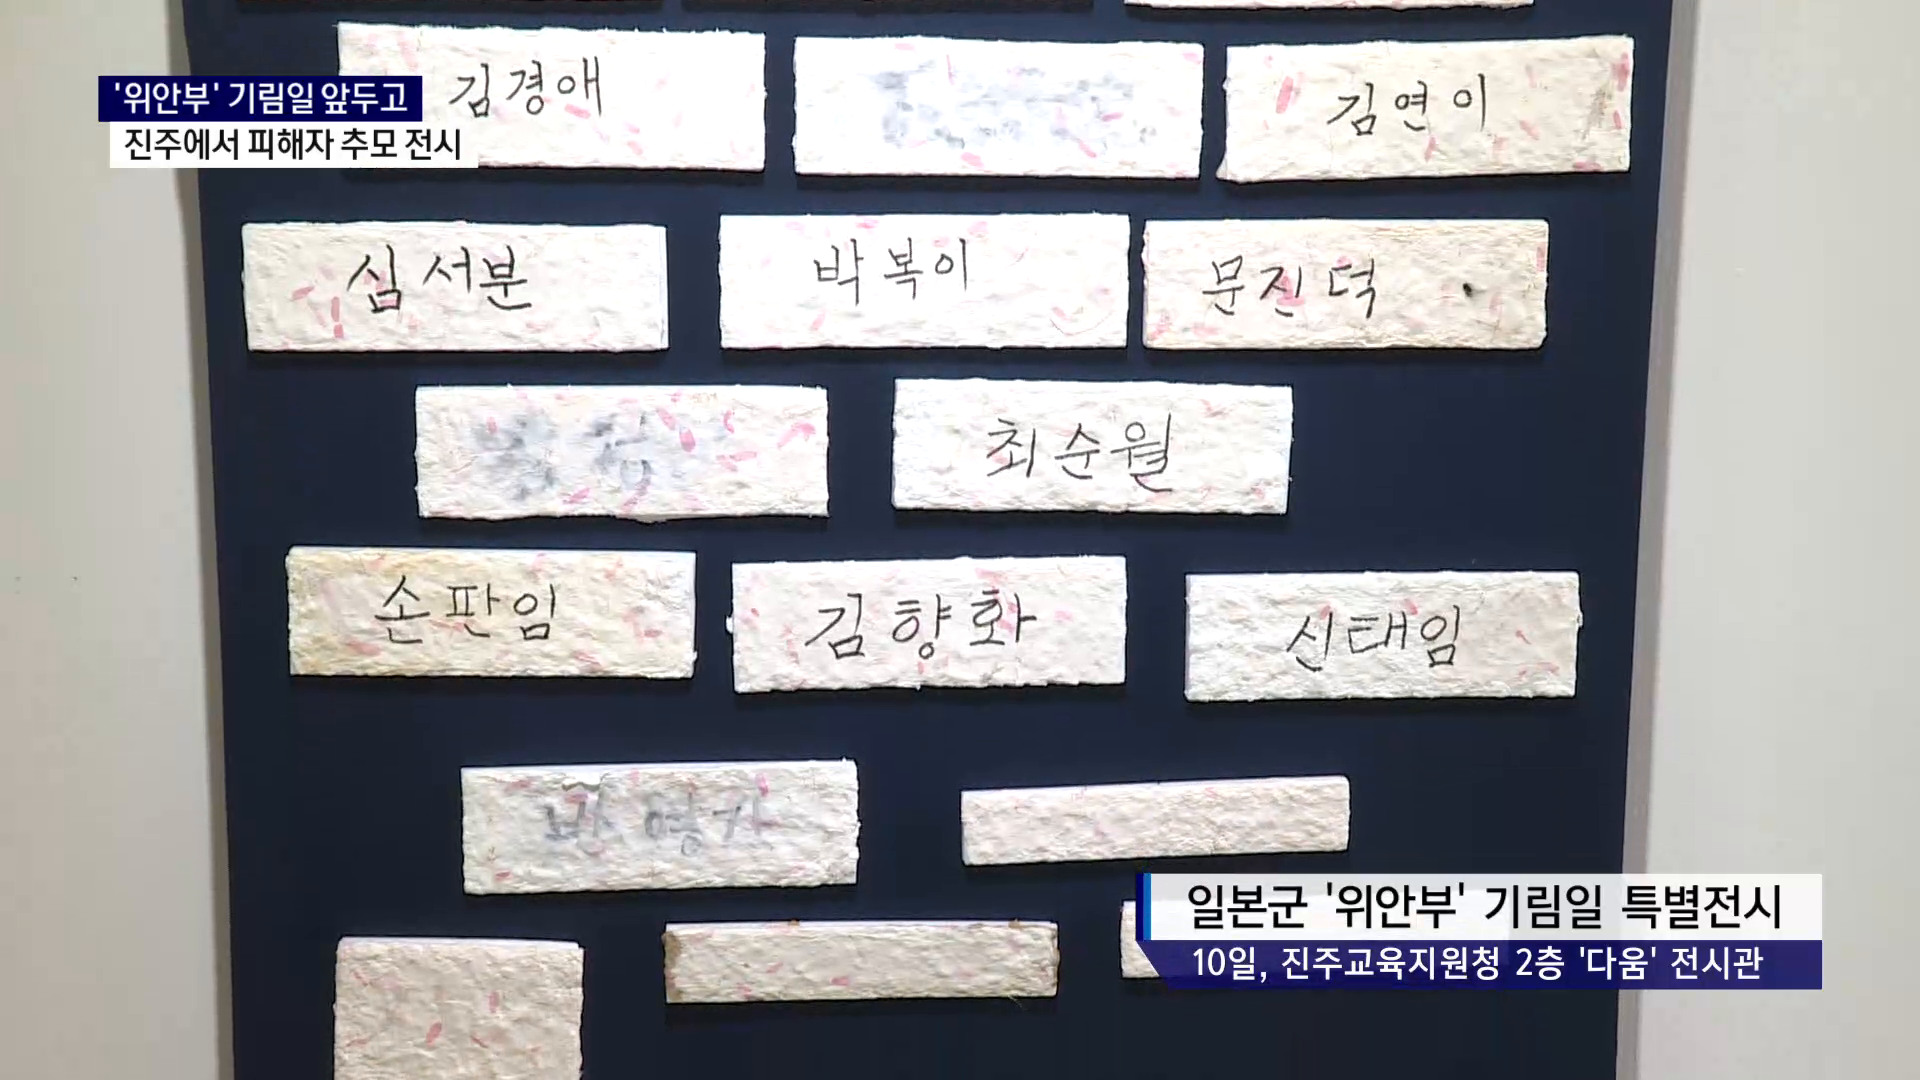 '위안부' 기림일 앞두고
진주에서 피해자 추모 전시
김경애
김연이
심서분
박복이
문진덕
최순월
손판임
김향화
신태임
일본군 '위안부' 기림일 특별전시
10일, 진주교육지원청 2층 '다움' 전시관